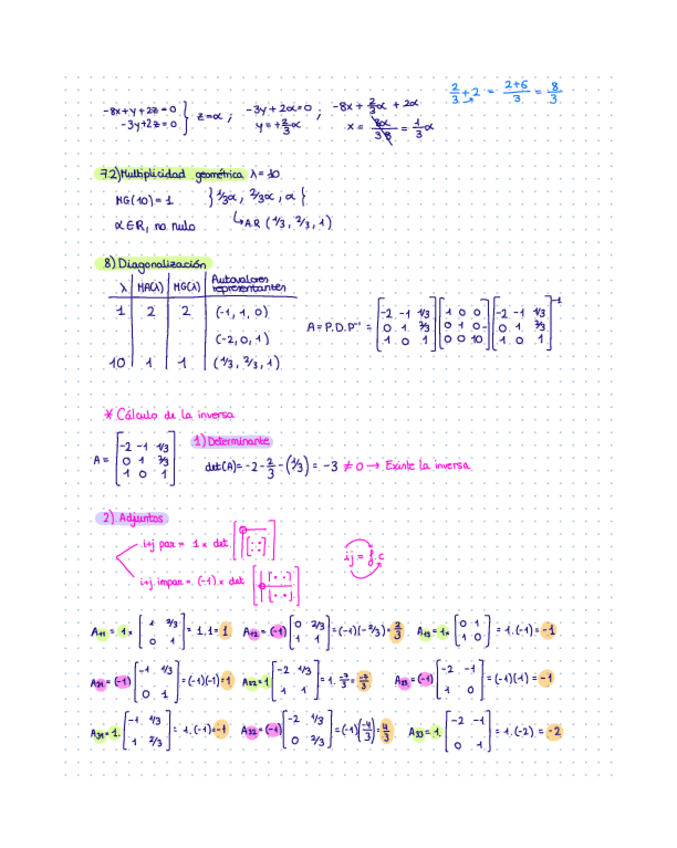 2/3 + 2 = (2+6)/3 = 8/3
-8x+y+2z=0 } z=α ; -3y+2α=0 ; -8x + 2/3 α + 2α
-3y+2z=0 y=+2/3 α x= 8α/3·8 = 1/3 α
7.2) Multiplicidad geométrica λ=10
MG(10)=1 } 1/3α, 2/3α, α {
α∈R, no nulo ↳ A.R (1/3, 2/3, 1)
8) Diagonalización
λ | MA(λ) | MG(λ) | Autovalores representantes
1 | 2 | 2 | (-1, 1, 0)
(-2, 0, 1)
10 | 1 | 1 | (1/3, 2/3, 1)
A=P.D.P⁻¹ = [-2 -1 1/3; 0 1 2/3; 1 0 1] [1 0 0; 0 1 0; 0 0 10] [-2 -1 1/3; 0 1 2/3; 1 0 1]⁻¹
* Cálculo de la inversa
A = [-2 -1 1/3; 0 1 2/3; 1 0 1]
1) Determinante
det(A)= -2 - 2/3 - (1/3) = -3 ≠ 0 → Existe la inversa
2) Adjuntos
i+j par = 1 × det [::]
ij = f.c
i+j. impar = (-1) × det
A11 = 1× [1 2/3; 0 1] = 1.1 = 1 A12 = (-1) [0 2/3; 1 1] = (-1)(-2/3) = 2/3 A13 = 1× [0 1; 1 0] = 1.(-1) = -1
A21 = (-1) [-1 1/3; 0 1] = (-1)(-1) = 1 A22 = 1 [-2 1/3; 1 1] = 1. -7/3 = -7/3 A23 = (-1) [-2 -1; 1 0] = (-1)(1) = -1
A31 = 1. [-1 1/3; 1 2/3] = 1.(-1) = -1 A32 = (-1) [-2 1/3; 0 2/3] = (-1)(-4/3) = 4/3 A33 = 1. [-2 -1; 0 1] = 1.(-2) = -2